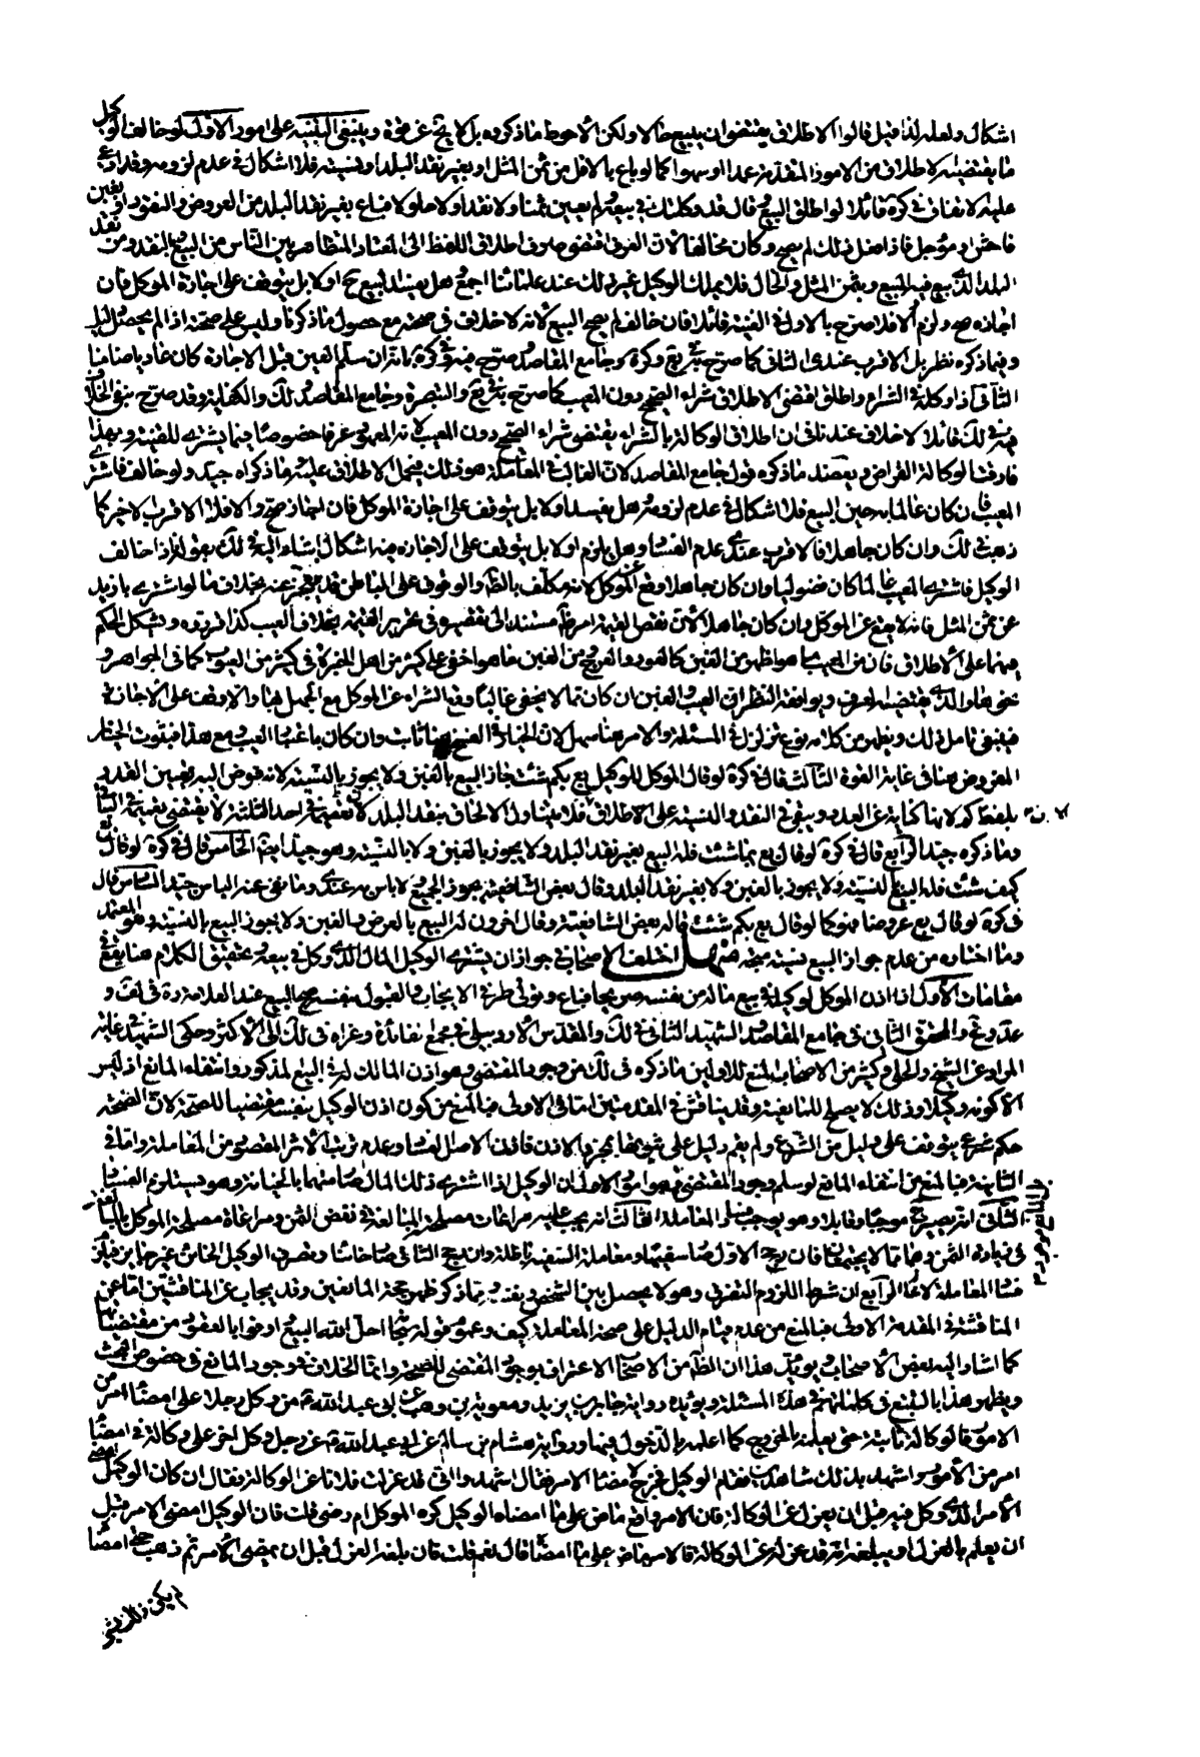 اشكال ولعله لذا قيل قالوا الاطلاق يقتضى ان يبيع حالا ولكن الأحوط ما ذكروه بل لا يخ عن قوة وينبغى التنبيه على امور الاول لو خالف الوكيل
ما يقتضيه الاطلاق من الامور المتقدمة عمدا او سهوا كما لو باع بالاقل من ثمن المثل او بغير نقد البلد او نسيئة فلا اشكال فى عدم لزومه وقد ادعى
عليه الاتفاق فى كرة قائلا لو اطلق البيع فقال قد وكلتك فى بيعه ولم يعين ثمنا ولا نقدا ولا حلولا فباع بغير نقد البلد من العروض والنقود او بغبن
فاحش او مؤجل فاذا فعل ذلك لم يصح وكان مخالفا لان العرف اقتضى صرف اطلاق اللفظ الى المعتاد المتظاهر بين الناس من البيع بالنقد ومن نقد
البلد الذى بيع فيه المبيع وبثمن المثل والحال فلا يملك الوكيل غير ذلك عند علمائنا اجمع وهل يفسد البيع ح او لا بل يتوقف على اجازة الموكل فان
اجازه صح ولزم والا فلا صرح بالاول فى الغنية قائلا فان خالف لم يصح البيع لانه لا خلاف فى صحته مع حصول ما ذكرنا وليس على صحته اذا لم يحصل دليل
وفيما ذكره نظر بل الاقرب عندى الثانى كما صرح به فى يع وكرة وجامع المقاصد وصرح فيه وفى كرة بانه ان سلم العين قبل الاجازة كان عاديا ضامنا
الثانى اذا وكله فى الشراء واطلق اقتضى الاطلاق شراء الصحيح دون المعيب كما صرح به فى يع والتبصرة وجامع المقاصد ولك والكفاية وقد صرح بنفى الخلاف
فيه فى لك قائلا لا خلاف عندنا فى ان اطلاق الوكالة بالشراء يقتضى شراء الصحيح دون المعيب لانه المعهود عرفا خصوصا فيما يشترى للقنية وبهذا
فارقت الوكالة القراض ويعضد ما ذكره قول جامع المقاصد لان الغالب فى المعاملة هو ذلك فيحمل الاطلاق عليه وما ذكراه جيد ولو خالف فاشترى
المعيب فان كان عالما به حين البيع فلا اشكال فى عدم لزومه وهل يفسد او لا بل يتوقف على اجازة الموكل فان اجاز صح والا فلا الاقرب الاخير كما
ذهب فى لك وان كان جاهلا فالاقرب عندى عدم الفساد وهل يلزم او لا بل يتوقف على الاجازة فيه اشكال
الوكيل فاشترى المعيب عالما كان فضوليا وان كان جاهلا وقع عن الموكل لانه مكلف بالظاهر والوقوف على الباطن قد يعجز عنه بخلاف ما لو اشترى بازيد
عن ثمن المثل فانه لا يقع عن الموكل وان كان جاهلا لان نقص القيمة امر ظاهر مستند الى تقصيره فى تحرير القيمة بخلاف العيب كذا فرقوه ويشكل الحكم
فيهما على الاطلاق فان من العيب ما هو اظهر من الغبن كالعور والعرج ومن الغبن ما هو اخفى على كثير من اهل الخبرة فى كثير من العيوب كما فى الجواهر و
نحوها والذى يقتضيه العرف ويوافقه النظر ان العيب والغبن ان كان مما لا يخفى غالبا وقع الشراء عن الموكل مع الجهل بهما والا وقف على الاجازة
فينبغى تامل ذلك ويظهر من كلامه نوع تزلزل فى المسئلة والامر هنا سهل لان الخيار فى الفسخ هنا ثابت وان كان باعتبار العيب مع هذا فثبوت الخيار
المفروض هنا فى غاية القوة الثالث قال فى كرة لو قال الموكل للوكيل بع بكم شئت فجاز البيع بالغبن ولا يجوز بالنسيئة لانه فوض اليه تعيين القدر
بلفظة كم لانها كناية عن العدد وبقى فى النقد والنسيئة على الاطلاق فلا يتناول الا الحال بنقد البلد لان تعميمه فى احد الثلثة لا يقتضى تعميمه فى الباقى
وما ذكره جيد الرابع قال فى كرة لو قال بع بما شئت فله البيع بغير نقد البلد ولا يجوز بالغبن ولا بالنسيئة وهو جيد ايضا الخامس قال فى كرة لو قال
كيف شئت فله البيع بالنسيئة ولا يجوز بالغبن ولا بغير نقد البلد وقال بعض الشافعية يجوز الجميع ولا باس به عندى وما نفى عنه الباس جيد السادس قال
فى كرة لو قال بع عروضا فهو كما لو قال بع بكم شئت قاله بعض الشافعية وقال اخرون له البيع بالعرض وبالغبن ولا يجوز البيع بالنسيئة وهو المعتمد
وما اختاره من عدم جواز البيع نسيئة متجه منهل اختلف الاصحاب فى جواز ان يشترى الوكيل المال الذى وكل فى بيعه وتحقيق الكلام هنا يقع فى
مقامات الاول اذا اذن الموكل لوكيله فى بيع ماله من نفسه صريحا فباع وتولى طرفى الايجاب والقبول بنفسه صح البيع عند العلامة فى لف و
عد ويع والمحقق الثانى فى جامع المقاصد والشهيد الثانى فى لك والمقدس الاردبيلى فى مجمع الفائدة وعزاه فى لك الى الاكثر وحكى الشهيد فى غاية
المراد عن الشيخ والحلى وكثير من الاصحاب المنع للاولين ما ذكره فى لك من وجود المقتضى وهو اذن المالك له فى البيع المذكور وانتفاء المانع اذ ليس
الا كونه وكيلا وذلك لا يصلح للمانعية وقد يناقش فى المقدمتين اما فى الاولى فبالمنع من كون اذن الوكيل بنفسه مقتضيا للصحة لان الصحة
حكم شرعى يتوقف على دليل من الشرع ولم يقم دليل على ثبوتها بمجرد الاذن فاذن الاصل الفساد وعدم ترتب الاثر المقصود من المعاملة واما فى
الثانية فبالمنع من انتفاء المانع لو سلم وجود المقتضى فهو امور الاول ان الوكيل اذا اشترى ذلك المال صار متهما بالخيانة وهو يستلزم الفساد
الثانى انه يصير ح موجبا وقابلا وهو يوجب فساد المعاملة الثالث انه يجب عليه مراعات مصلحة المبالغة فى نقص الثمن ومراعاة مصلحة الموكل بالمبالغة
فى زيادة الثمن وهما مما لا يجتمعان
فساد المعاملة لا محالة الرابع ان شرط اللزوم التفرق وهو لا يحصل بين الشخص ونفسه وبما ذكر ظهر حجة المانعين وقد يجاب عن المناقشتين اما عن
المناقشة فى المقدمة الاولى فبالمنع من عدم قيام الدليل على صحة المعاملة كيف وعموم قوله تعالى احل الله البيع واوفوا بالعقود من مقتضياتها
كما اشار اليه بعض الاصحاب ويؤيد هذا ان الظاهر من الاصحاب الاعتراف بوجود المقتضى للصحة وانما الخلاف فى وجود المانع فى خصوص البحث
ويظهر هذا بالتتبع فى كلماتهم فى هذه المسئلة ويؤيده رواية جابر بن يزيد ومعوية بن وهب عن ابى عبد الله ع من وكل رجلا على امضاء امر من
الامور فالوكالة ثابتة حتى يعلمه بالخروج كما اعلمه بالدخول فيها ورواية هشام بن سالم عن ابى عبد الله ع عن رجل وكل اخر على وكالة فى امضاء
امر من الامور واشهد بذلك شاهدين فقام الوكيل فخرج لامضاء الامر فقال اشهدوا انى قد عزلت فلانا عن الوكالة فقال ان كان الوكيل امضى
الامر الذى وكل فيه قبل ان يعزل عن الوكالة فان الامر واقع ماض على ما امضاه الوكيل كره الموكل ام رضى قلت فان الوكيل امضى الامر قبل
ان يعلم بالعزل او يبلغه انه قد عزله عن الوكالة فالامر ماض على ما امضاه قال نعم قلت فان بلغه العزل قبل ان يمضى الامر ثم ذهب حتى امضاه
لم يكن ذلك بشئ